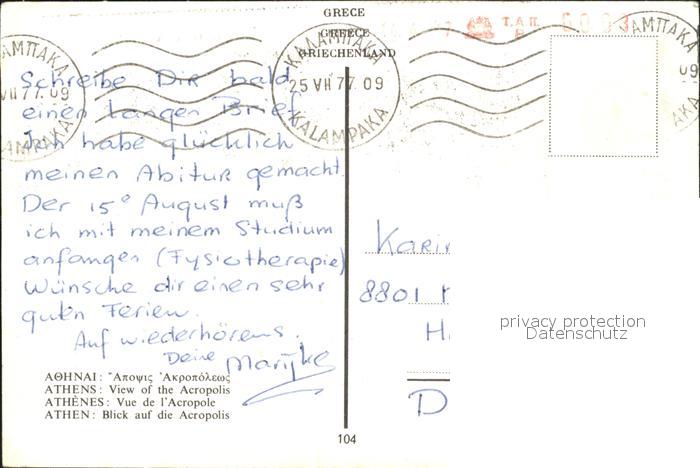 GRECE
GREECE
GRIECHENLAND
Τ.Α.Π.
ΚΑΛΑΜΠΑΚΑ
25 VII 77. 09
KALAMPAKA
Schreibe Dir bald
einen langen Brief
Ich habe glücklich
meinen Abitur gemacht.
Der 15e August muß
ich mit meinem Studium
anfangen (Fysiotherapie)
Wünsche dir einen sehr
guten Ferien.
Auf wiederhörens.
Deine Marijke
ΑΘΗΝΑΙ: Ἄποψις Ἀκροπόλεως
ATHENS: View of the Acropolis
ATHÈNES: Vue de l'Acropole
ATHEN: Blick auf die Acropolis
104
Karin
8801
H
D
privacy protection
Datenschutz